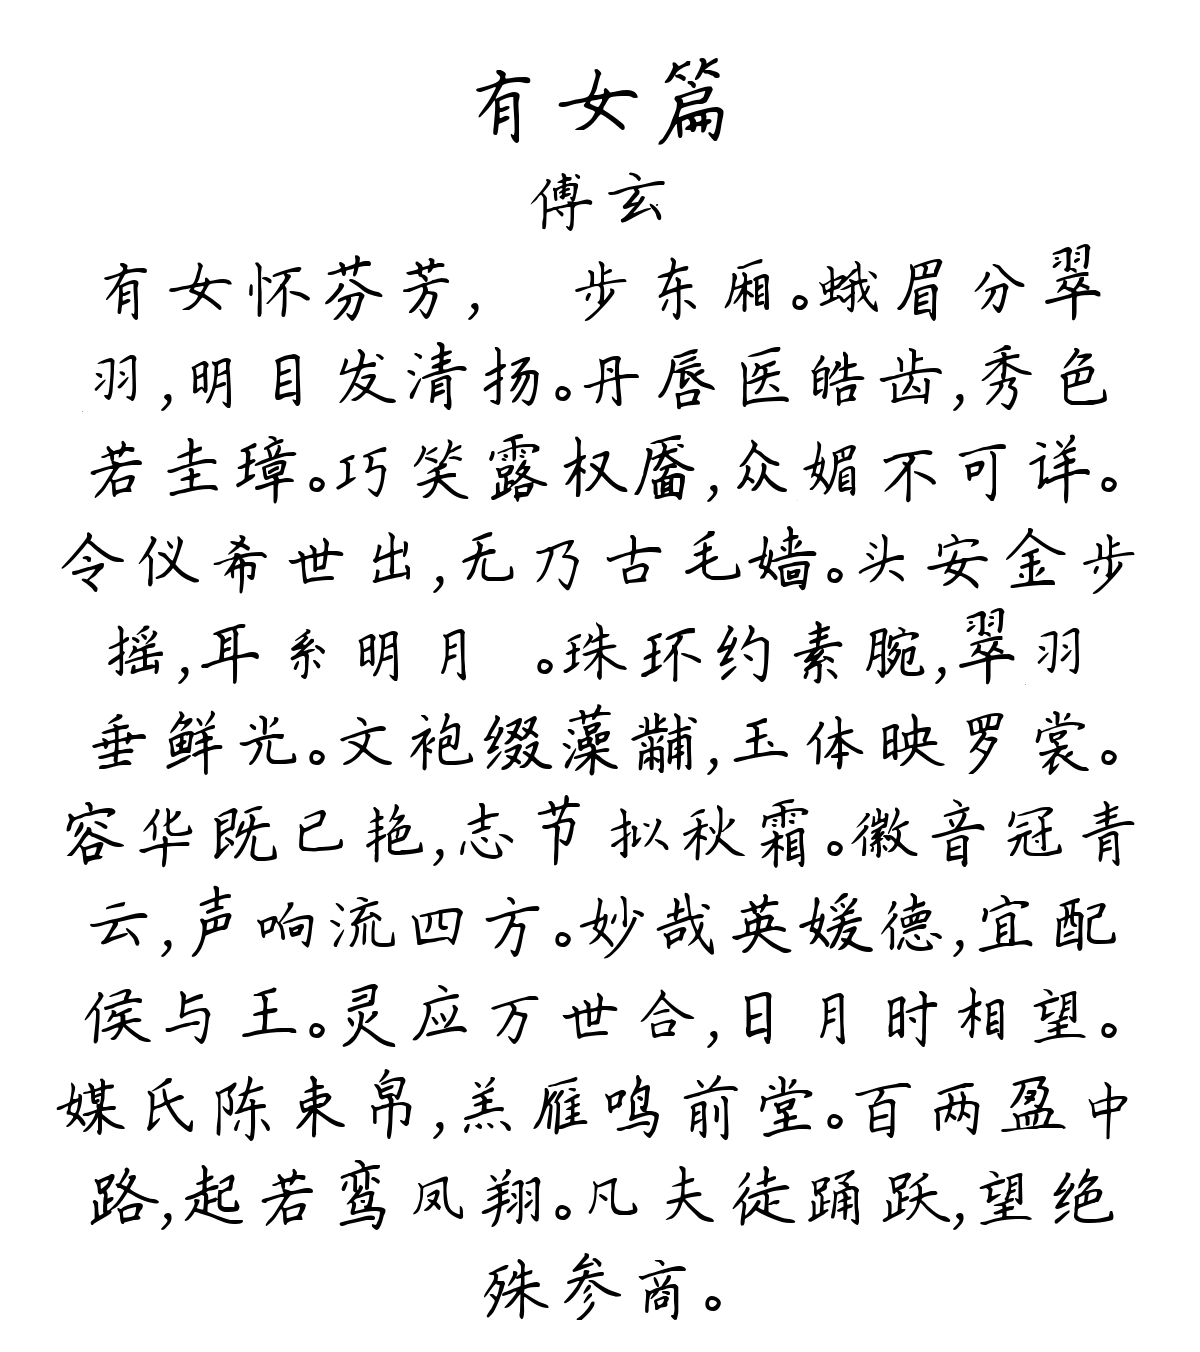 有女篇
傅玄
有女怀芬芳， 步东厢。蛾眉分翠
羽，明目发清扬。丹唇医皓齿，秀色
若圭璋。巧笑露权靥，众媚不可详。
令仪希世出，无乃古毛嫱。头安金步
摇，耳系明月 。珠环约素腕，翠羽
垂鲜光。文袍缀藻黼，玉体映罗裳。
容华既已艳，志节拟秋霜。徽音冠青
云，声响流四方。妙哉英媛德，宜配
侯与王。灵应万世合，日月时相望。
媒氏陈束帛，羔雁鸣前堂。百两盈中
路，起若鸾凤翔。凡夫徒踊跃，望绝
殊参商。